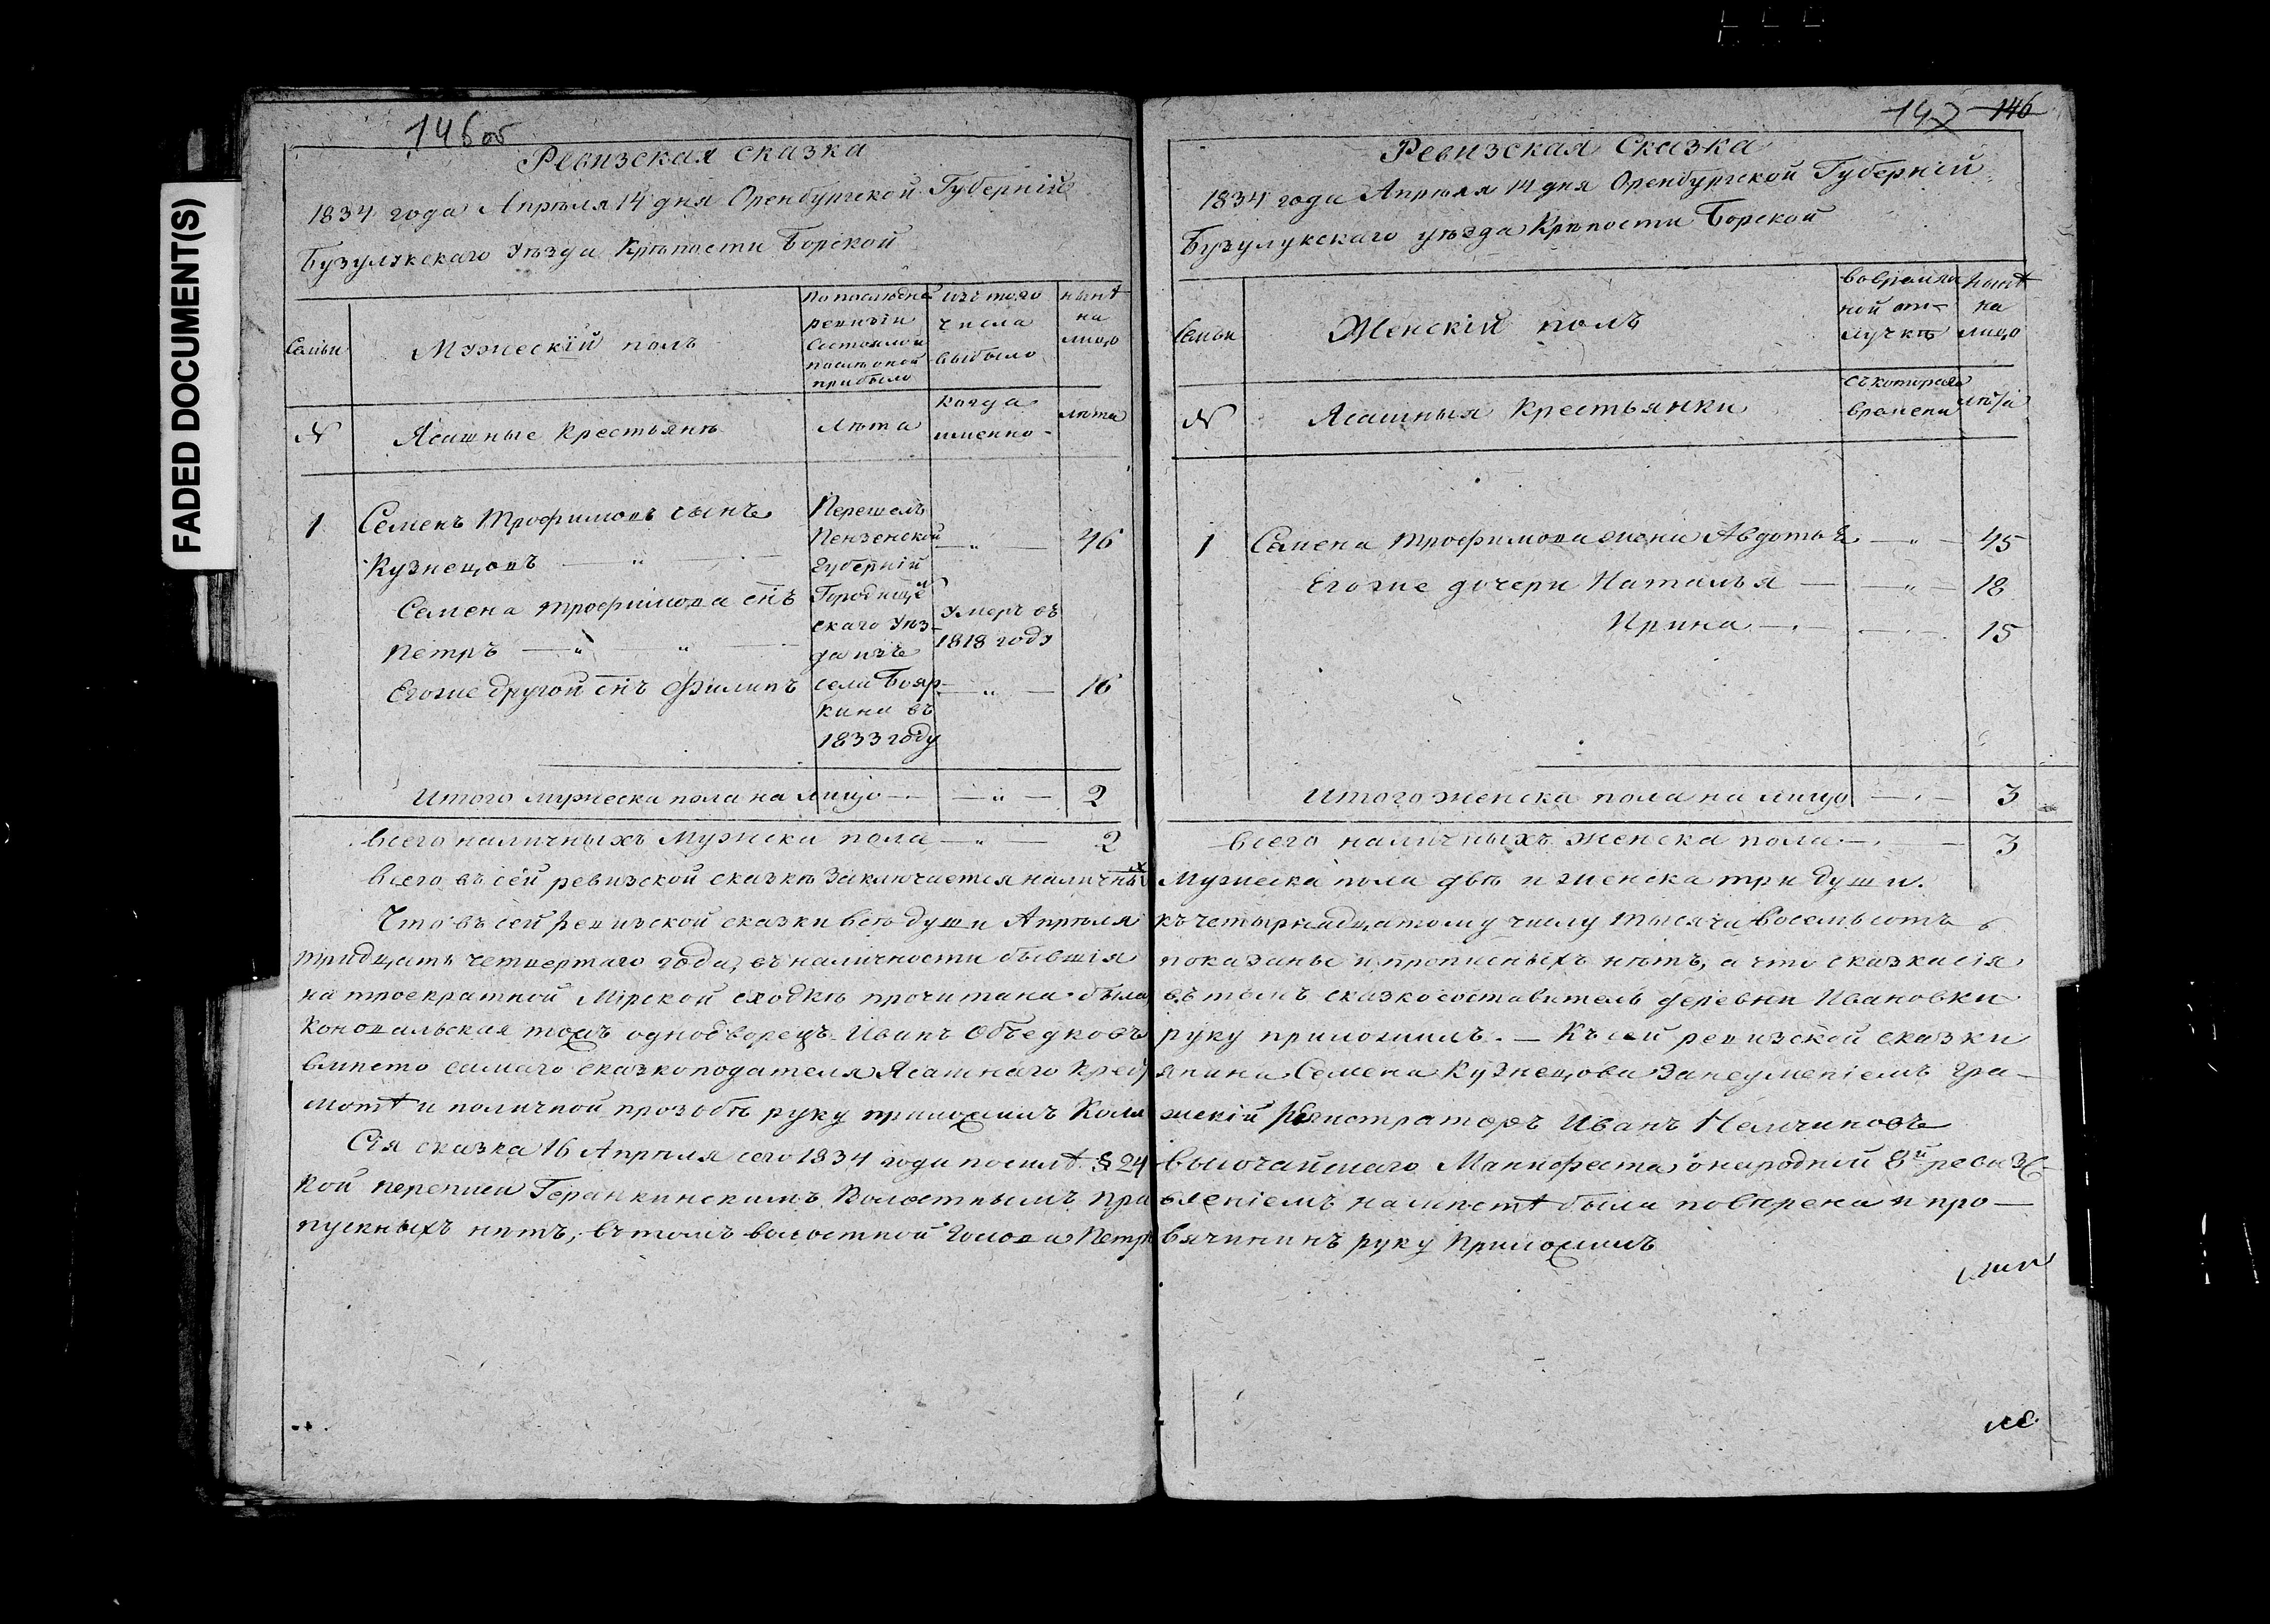 FADED DOCUMENT(S)
146об
Ревизская сказка
1834 года Апрѣля 14 дня Оренбургской Губерніи
Бузулукскаго уѣзда Крѣпости Борской
Семьи
Мужескій полъ
По последней
ревизіи
состояло и
послѣ оной
прибыло
изъ того
числа
выбыло
нынѣ
на
лицо
N
Ясашные Крестьянѣ
Лѣта
когда
именно
лѣта
1
Семенъ Трофимовъ сынъ
Кузнецовъ — „ —
Перешелъ
Пензенской
Губерніи
Городище
скаго уѣз-
да изъ
села Бояр-
кина въ
1833 году
— „ —
46
Семена Трофимова снъ
Петръ — „ — „ —
умеръ въ
1818 году
Егоже другой снъ Филипъ
— „ —
16
Итого мужеска пола на лицо — — „ — 2
Всего наличныхъ мужска пола — „ — 2
147 146
Ревизская Сказка
1834 года Апрѣля 14 дня Оренбургской Губерніи
Бузулукскаго уѣзда Крѣпости Борской
Семьи
Женскій полъ
во времян
ной от-
лучкѣ
нынѣ
на
лицо
N
Ясашныя Крестьянки
съ котораго
времени
лѣта
1 Семена Трофимова жена Авдотья — „ — 45
Егоже дочери Наталья — — „ — 18
Ирина — . — — . — 15
Итого женска пола на лицо — . — 3
Всего наличныхъ женска пола — . — 3
Всего въ сей ревизской сказкѣ заключается наличныхъ мужеска пола двѣ и женска три души.
Что въ сей ревизской сказки всѣ души Апрѣля къ четырнадцатому числу тысяча восемьсотъ
тридцать четвертаго года, въ наличности бывшія показаны и прописныхъ нѣтъ, а что сказка сія
на троекратной Мірской сходкѣ прочитана была, въ томъ сказкосоставитель деревни Ивановки
Коновальская тожъ однодворецъ Иванъ Объедковъ руку приложилъ. — Къ сей ревизской сказки
вмѣсто самаго сказкоподателя Ясашнаго Кресть янина Семена Кузнецова за неумѣніемъ гра-
мотѣ и по личной прозьбѣ руку приложилъ Колле жскій Регистраторъ Иванъ
Сія сказка 16 Апрѣля сего 1834 года по силѣ § 24 высочайшаго Манифеста о народной 8й ревизс-
кой переписи Геранкинскимъ Волостнымъ Пра вленіемъ на мѣстѣ была повѣрена и про —
пускныхъ нѣтъ, въ томъ волостной Голова Петръ Вячининъ руку приложилъ